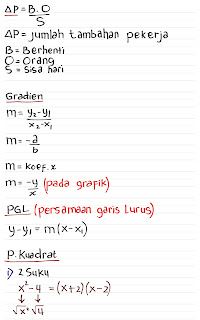 ΔP = B.O / S
ΔP = jumlah tambahan pekerja
B = Berhenti
O = Orang
S = Sisa hari
Gradien
m = y₂-y₁ / x₂-x₁
m = -a / b
m = koef. x
m = -y / x (pada grafik)
PGL (persamaan garis lurus)
y-y₁ = m(x-x₁)
P. Kuadrat
1) 2 Suku
x²-4 = (x+2)(x-2)
↓ ↓
√x² √4